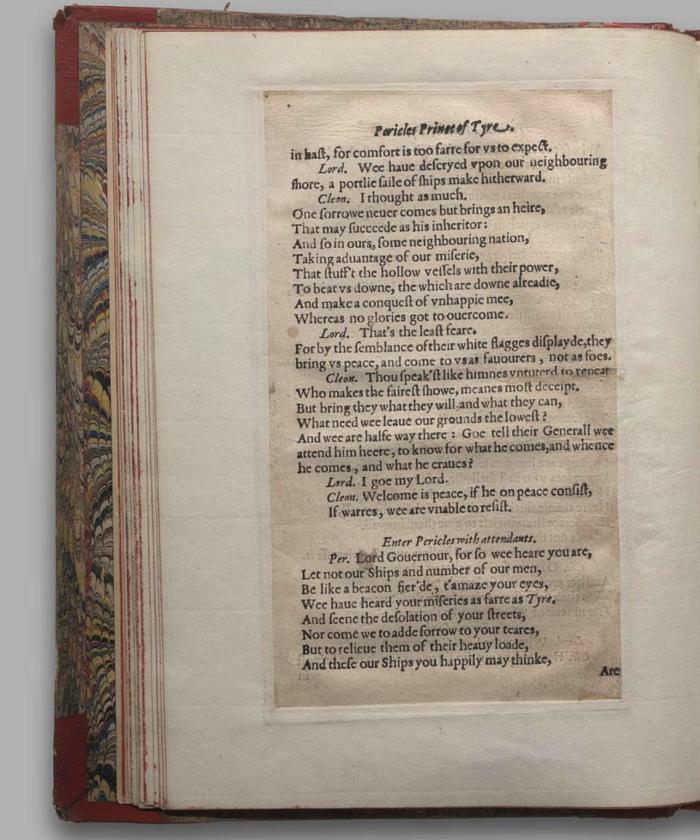 Pericles Prince of Tyre.
in haſt, for comfort is too farre for vs to expect.
Lord. Wee haue deſcryed vpon our neighbouring
ſhore, a portlie ſaile of ſhips make hitherward.
Cleon. I thought as much.
One ſorrowe neuer comes but brings an heire,
That may ſucceede as his inheritor:
And ſo in ours, ſome neighbouring nation,
Taking aduantage of our miſerie,
That ſtuff't the hollow veſſels with their power,
To beat vs downe, the which are downe alreadie,
And make a conqueſt of vnhappie mee,
Whereas no glories got to ouercome.
Lord. That's the leaſt feare.
For by the ſemblance of their white flagges diſplayde, they
bring vs peace, and come to vs as fauourers, not as foes.
Cleon. Thou ſpeak'ſt like himnes vntuterd to repeat
Who makes the faireſt ſhowe, meanes moſt deceipt.
But bring they what they will, and what they can,
What need wee leaue our grounds the loweſt?
And wee are halfe way there: Goe tell their Generall wee
attend him heere, to know for what he comes, and whence
he comes, and what he craues?
Lord. I goe my Lord.
Cleon. Welcome is peace, if he on peace conſiſt,
If warres, wee are vnable to reſiſt.
Enter Pericles with attendants.
Per. Lord Gouernour, for ſo wee heare you are,
Let not our Ships and number of our men,
Be like a beacon fier'de, t'amaze your eyes,
Wee haue heard your miſeries as farre as Tyre,
And ſeene the deſolation of your ſtreets,
Nor come we to adde ſorrow to your teares,
But to relieue them of their heauy loade,
And theſe our Ships you happily may thinke,
Are